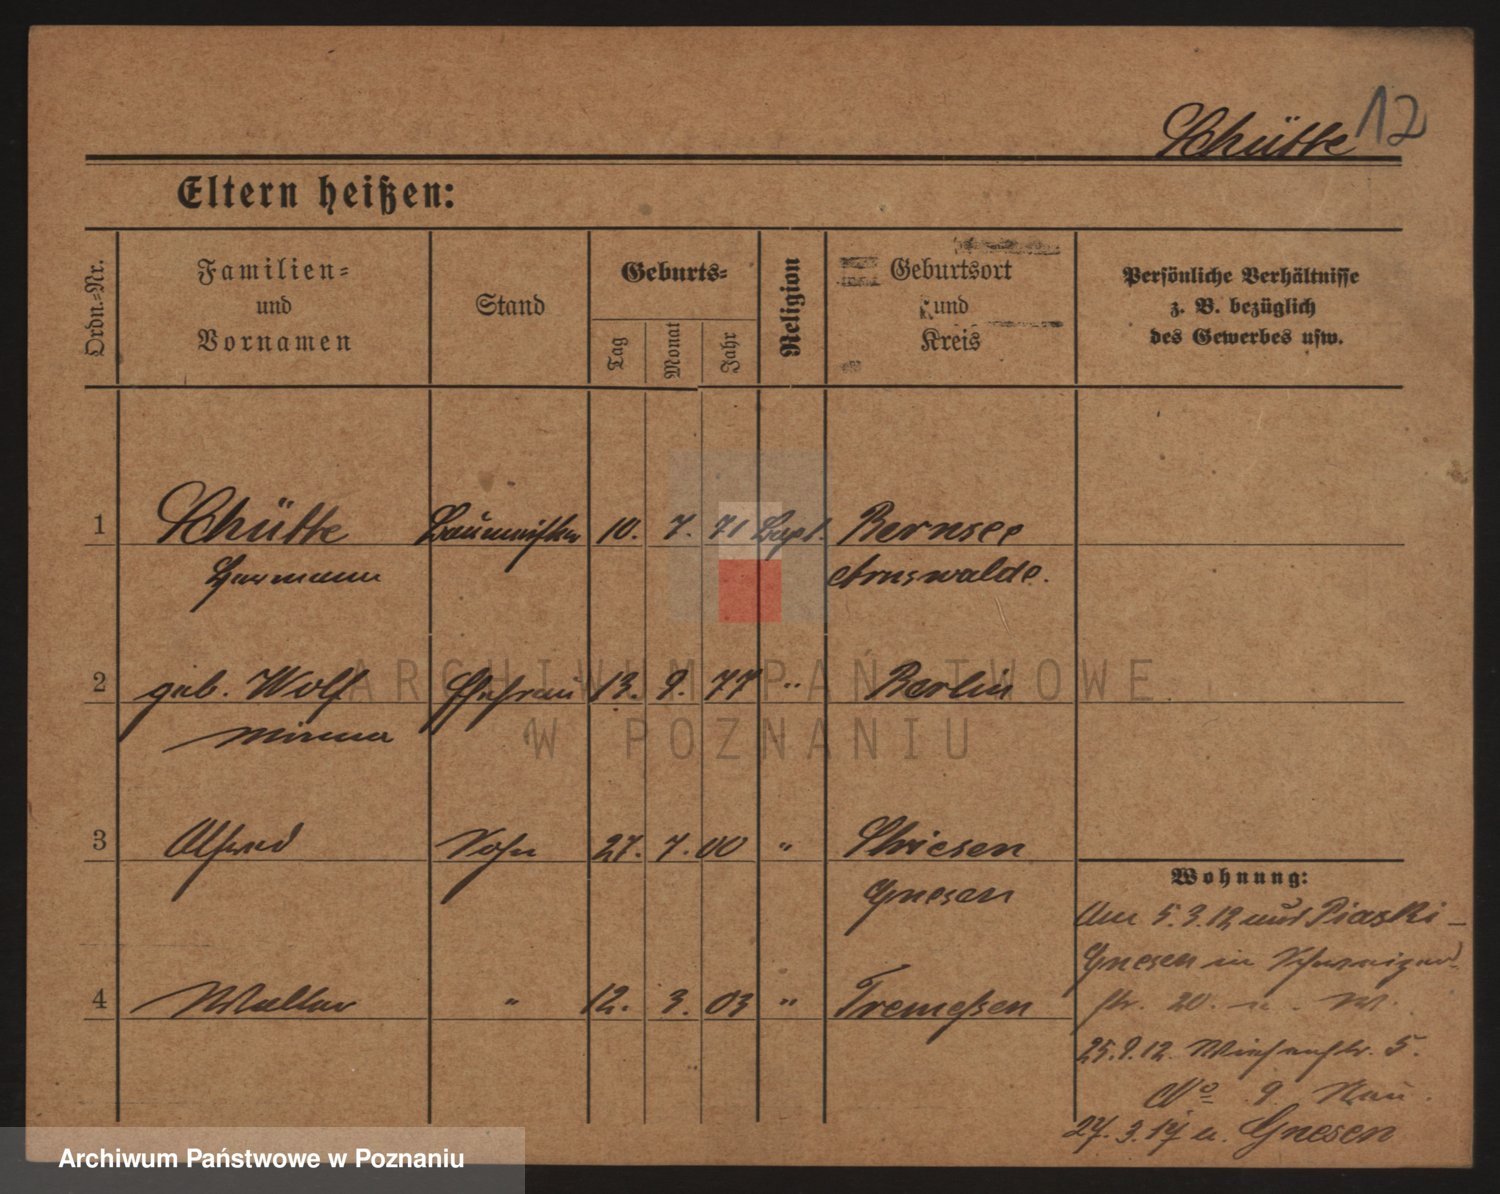 12
Schütte
Eltern heißen:
Ordn.=Nr.
Familien=
und
Vornamen
Stand
Geburts=
Tag
Monat
Jahr
Religion
Geburtsort
und
Kreis
Persönliche Verhältnisse
z. B. bezüglich
des Gewerbes usw.
1 Schütte Baumeister 10. 7. 71 Bapt. Bernsee
Hermann Arnswalde.
2 geb. Wolf Ehefrau 13. 9. 77 " Berlin
Minna
3 Alfred Sohn 27. 7. 00 "
Gnesen
4 Walter " 12. 3. 03 " Tremeßen
Wohnung:
Am 5.3.12 aus Piaski-
Gnesen in
str. 20.
25.9.12. 5.
No 9
27.3.14 n. Gnesen
ARCHIWUM PAŃSTWOWE
W POZNANIU
Archiwum Państwowe w Poznaniu